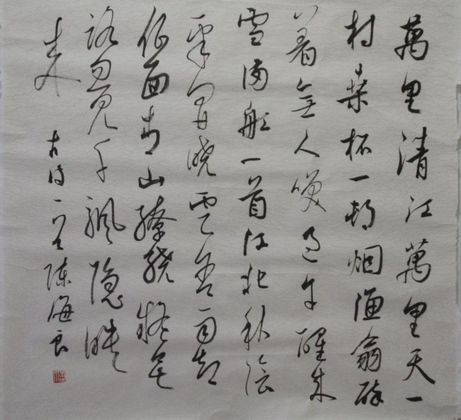 萬里清江萬里天一
村桑柘一村烟漁翁醉
着無人喚過午醒来
雪滿船一首江北秋陰
一半開曉雲含雨却
低回青山繚繞疑無
路忽見千帆隱映
来
古诗 陈海良